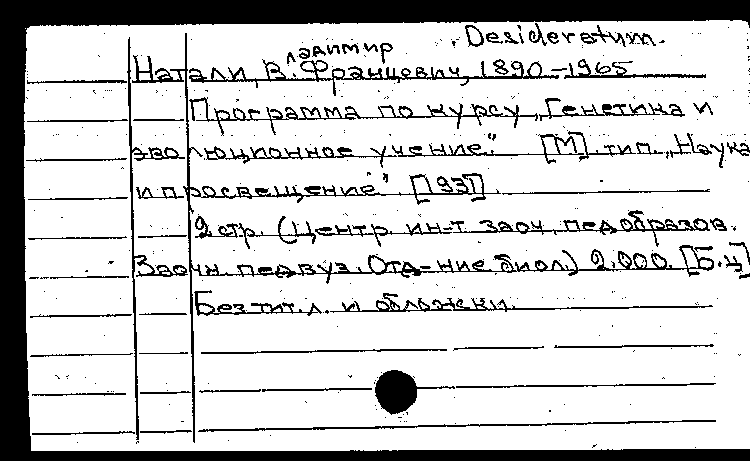 Desideratum.
Натали, В.ладимир Францевич, 1890-1965
Программа по курсу „Генетика и
эволюционное учение". [М]. тип. „Наука
и просвещение". [193]].
2 стр. (Центр. ин-т заоч. педобразов.
Заочн. педвуз. Отд-ние биол.) 2.000. [Б.ц]
Без тит. л. и обложки.